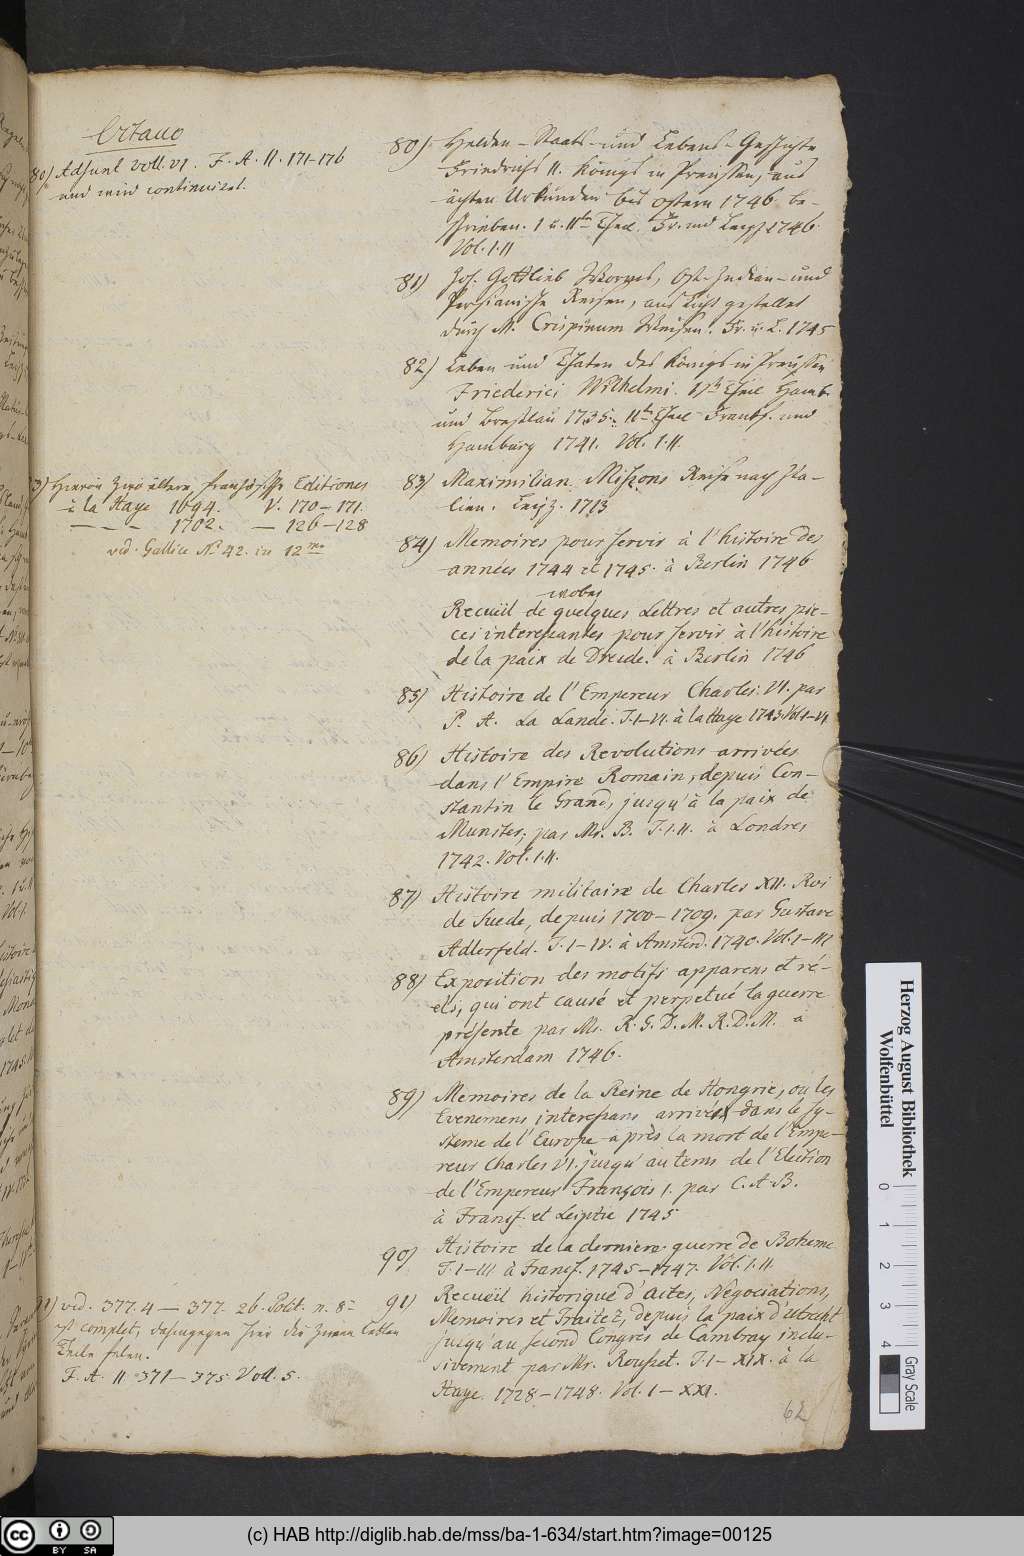 Octavo
80) Adsunt voll. VI. F. A. II. 171-176
und wird continuiret.
80) Helden- Staats- und Lebens-Geschichte
Friedrichs II. Königs in Preussen, aus
ächten Urkunden bis ostern 1746 be-
schrieben. I u. IIter Theil. Fr. und Leipz 1746
Vol. I. II
81) Joh. Gottlieb Worms, Ost-Indian- und
Persianische Reisen, ans Licht gestellet
durch M. Crispinum Weisen. Fr. u. L. 1745
82) Leben und Thaten des Königs in Preussen
Friederici Wilhelmi. Ister Theil Hamb.
und Breslau 1735. IIter Theil Franckf. und
Hamburg 1741. Vol. I. II.
83) Hiervon zwo ältere französische Editiones
à la Haye 1694. V. 170-171.
— — — 1702. — 126-128
vid. Gallica No 42. in 12mo
83) Maximilian Missons Reise nach Ita-
lien. Leipz. 1713
84) Memoires pour servir à l'histoire des
années 1744 et 1745. à Berlin 1746
wobey
Recueil de quelques Lettres et autres pie-
ces interessantes pour servir à l'histoire
de la paix de Dresde. à Berlin 1746
85) Histoire de l'Empereur Charles. VI. par
P. A. La Lande. T. I-VI. à la Haye 1743 Vol. I-VI
86) Histoire des Revolutions arrivées
dans l'Empire Romain, depuis Con-
stantin le Grand, jusqu'à la paix de
Munster, par Mr. B. T. I. II. à Londres
1742. Vol. I. II.
87) Histoire militaire de Charles XII. Roi
de Suede, depuis 1700-1709. par Gustave
Adlerfeld. T. I-IV. à Amsterd. 1740. Vol. I-III
88) Exposition des motifs apparens et ré-
els, qui ont causé et perpetué la guerre
présente par Mr. R. G. D. M. R. D. M. à
Amsterdam 1746.
89) Memoires de la Reine de Hongrie, ou les
Evenemens interessans arrivés dans le sy-
steme de l'Europe après la mort de l'Empe-
reur Charles VI. jusqu'au tems de l'Election
de l'Empereur François I. par C. A. B.
à Francf. et Leiptic 1745
90) Histoire de la derniere guerre de Boheme
T. I-III à Francf. 1745-1747. Vol. I. II
91) vid. 377. 4 — 377. 26. Polit. n. 8o
ist complet, dahingegen hier die zween letzten
Theile felen.
F. A. II 371-375. Voll. 5.
91) Recueil historique d'Actes, Negociations,
Memoires et Traitez, depuis la paix d'Utrecht
jusqu'au second Congrès de Cambray inclu-
sivement par Mr. Rousset. T. I-XIX. à la
Haye 1728-1748. Vol. I-XXI.
62
Herzog August Bibliothek
Wolfenbüttel
0 1 2 3 4
Gray Scale
cc BY SA
(c) HAB http://diglib.hab.de/mss/ba-1-634/start.htm?image=00125